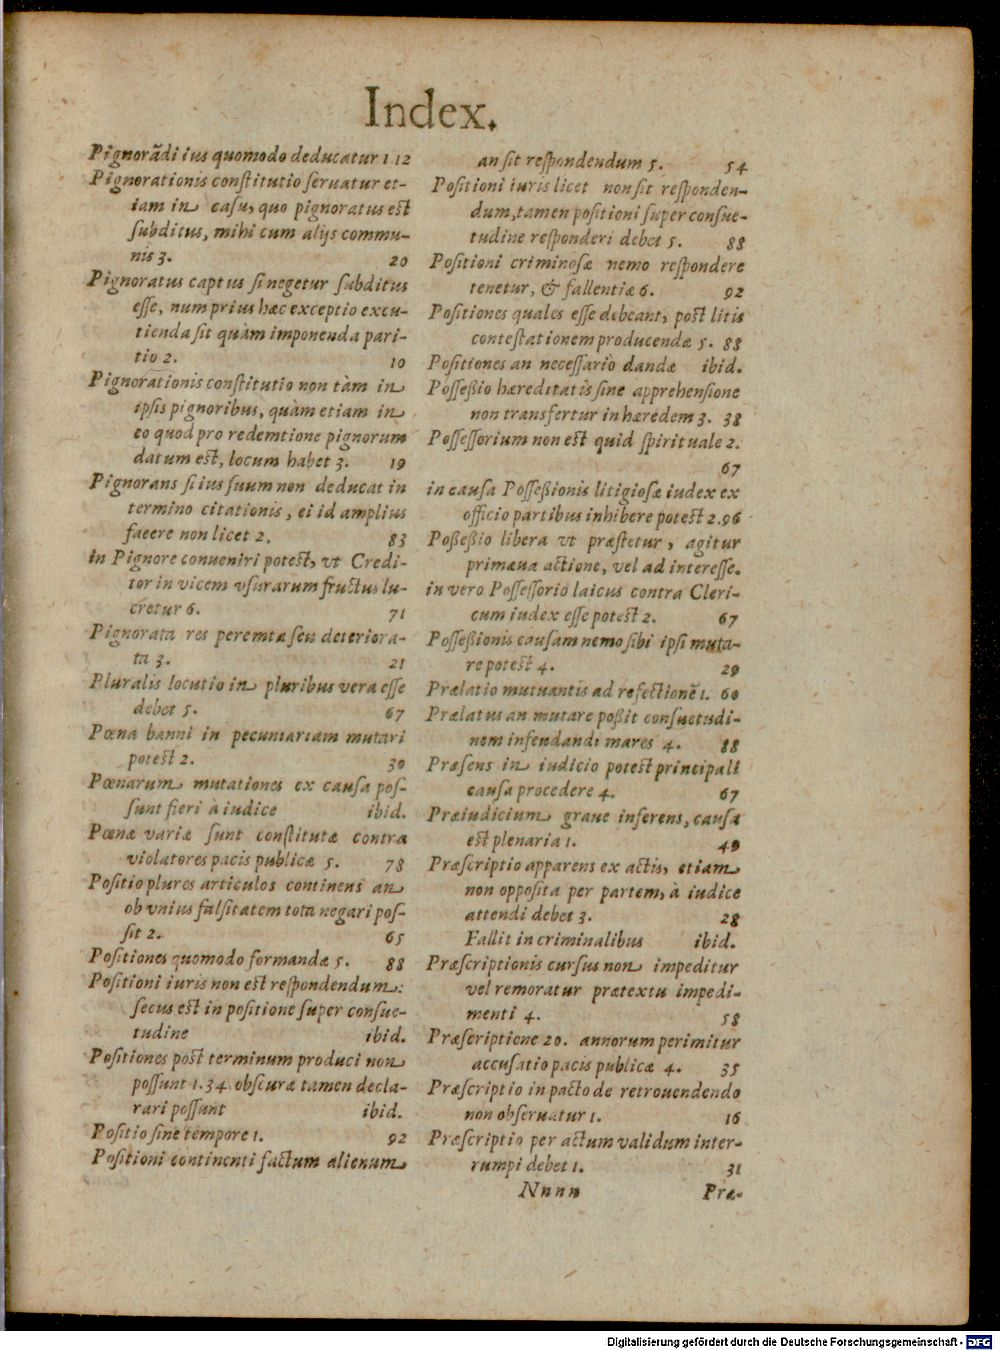 Index.
Pignorãdi ius quomodo deducatur 1 12
Pignorationis constitutio seruatur et-
iam in casu, quo pignoratus est
subditus, mihi cum alijs commu-
nis 3. 20
Pignoratus captus si negetur subditus
esse, num prius hæc exceptio excu-
tienda sit quàm imponenda pari-
tio 2. 10
Pignorationis constitutio non tàm in
ipsis pignoribus, quàm etiam in
eo quod pro redemtione pignorum
datum est, locum habet 3. 19
Pignorans si ius suum non deducat in
termino citationis, ei id amplius
faeere non licet 2. 83
in Pignore conueniri potest, vt Credi-
tor in vicem vsurarum fructus lu-
cretur 6. 71
Pignorata res peremta seu deteriora-
ta 3. 21
Pluralis locutio in pluribus vera esse
debet 5. 67
Pœna banni in pecuniariam mutari
potest 2. 30
Pœnarum mutationes ex causa pos-
sunt fieri à iudice ibid.
Pœnæ variæ sunt constitutæ contra
violatores pacis publicæ 5. 78
Positio plures articulos continens an
ob vnius falsitatem tota negari pos-
sit 2. 65
Positiones quomodo formandæ 5. 88
Positioni iuris non est respondendum:
secus est in positione super consue-
tudine ibid.
Positiones post terminum produci non
possunt 1.34 obscuræ tamen decla-
rari possunt ibid.
Positio sine tempore 1. 92
Positioni continenti factum alienum
an sit respondendum 5. 54
Positioni iuris licet non sit responden-
dum, tamen positioni super consue-
tudine responderi debet 5. 88
Positioni criminosæ nemo respondere
tenetur, & fallentiæ 6. 92
Positiones quales esse debeant, post litis
contestationem producendæ 5. 88
Positiones an necessariò dandæ ibid.
Posseßio hæreditatis sine apprehensione
non transfertur in hæredem 3. 38
Possessorium non est quid spirituale 2.
67
in causa Posseßionis litigiosæ iudex ex
officio partibus inhibere potest 2.96
Poßeßio libera vt præstetur, agitur
primæua actione, vel ad interesse.
in vero Possessorio laicus contra Cleri-
cum iudex esse potest 2. 67
Posseßionis causam nemo sibi ipsi muta-
re potest 4. 29
Prælatio mutuantis ad refectionẽ 1. 60
Prælatus an mutare poßit consuetudi-
nem infeudandi mares 4. 88
Præsens in iudicio potest principali
causa procedere 4. 67
Præiudicium graue inferens, causa
est plenaria 1. 49
Præscriptio apparens ex actis, etiam
non opposita per partem, à iudice
attendi debet 3. 28
Fallit in criminalibus ibid.
Præscriptionis cursus non impeditur
vel remoratur prætextu impedi-
menti 4. 58
Præscriptiene 20. annorum perimitur
accusatio pacis publicæ 4. 35
Præscriptio in pacto de retrouendendo
non obseruatur 1. 16
Præscriptio per actum validum inter-
rumpi debet 1. 31
Nnnn Præ-
Digitalisierung gefördert durch die Deutsche Forschungsgemeinschaft - DFG